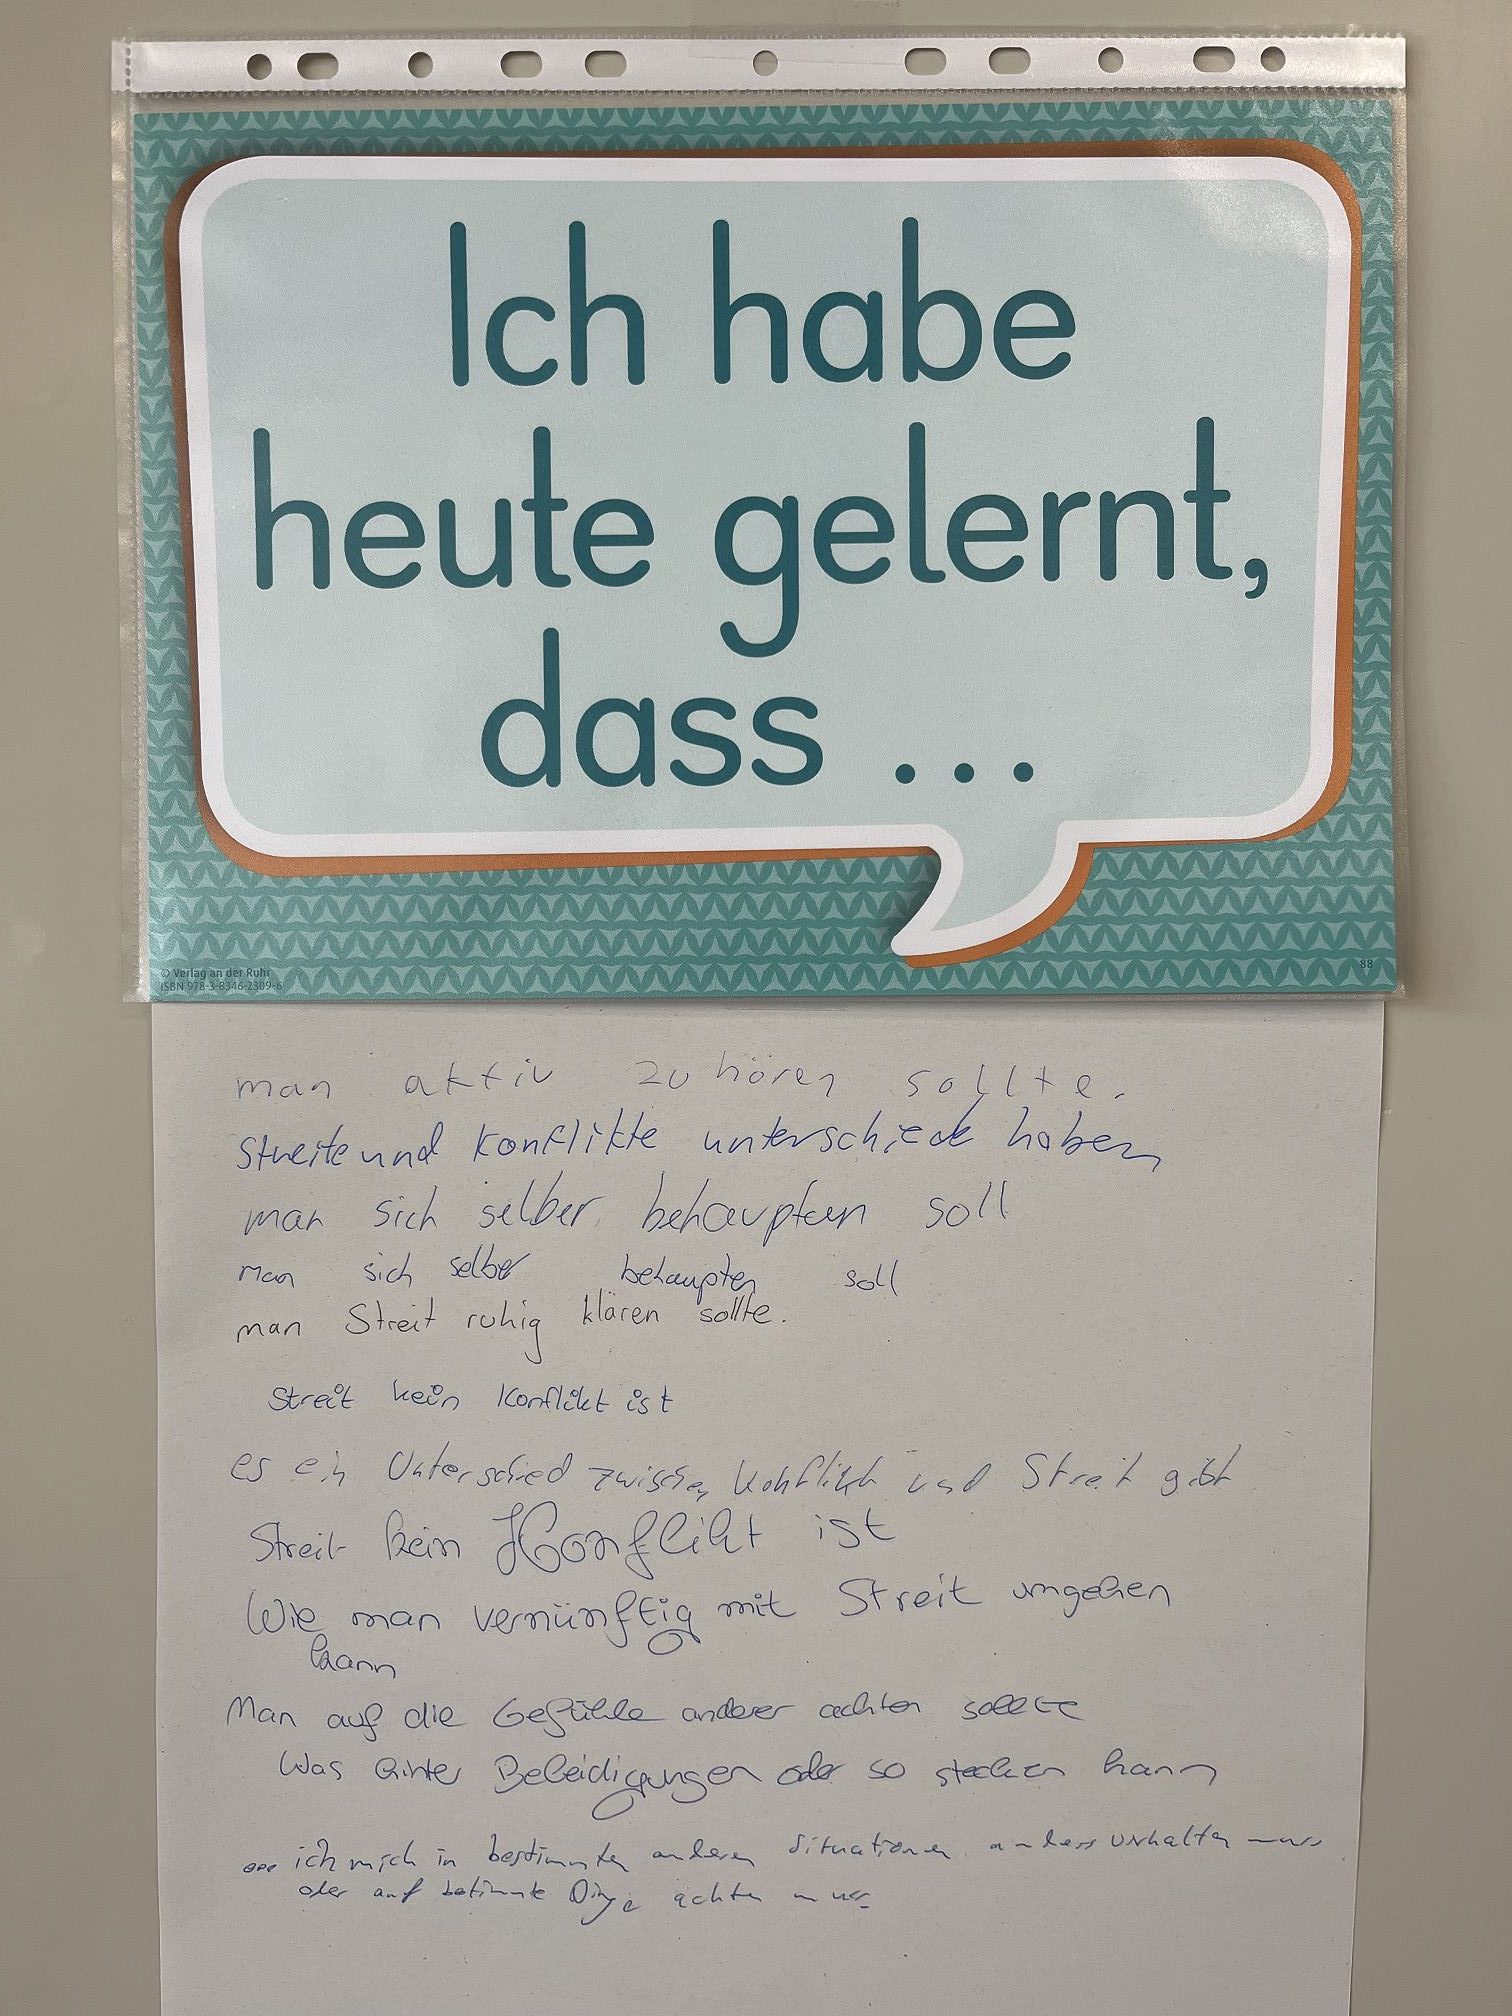 Ich habe
heute gelernt,
dass ...
© Verlag an der Ruhr
ISBN 978-3-8346-2309-6
88
man aktiv zu hören sollte.
Streite und Konflikte unterschiede haben
man sich selber behaupten soll
man sich selber behaupten soll
man Streit ruhig klären sollte.
Streit kein Konflikt ist
es ein Unterschied zwischen Konflikt und Streit gibt
Streit kein Konflikt ist
Wie man vernünftig mit Streit umgehen
kann
Man auf die Gefühle anderer achten sollte
Was hinter Beleidigungen oder so stecken kann
... ich mich in bestimmten anderen Situationen anders verhalten muss
oder auf bestimmte Dinge achten muss.